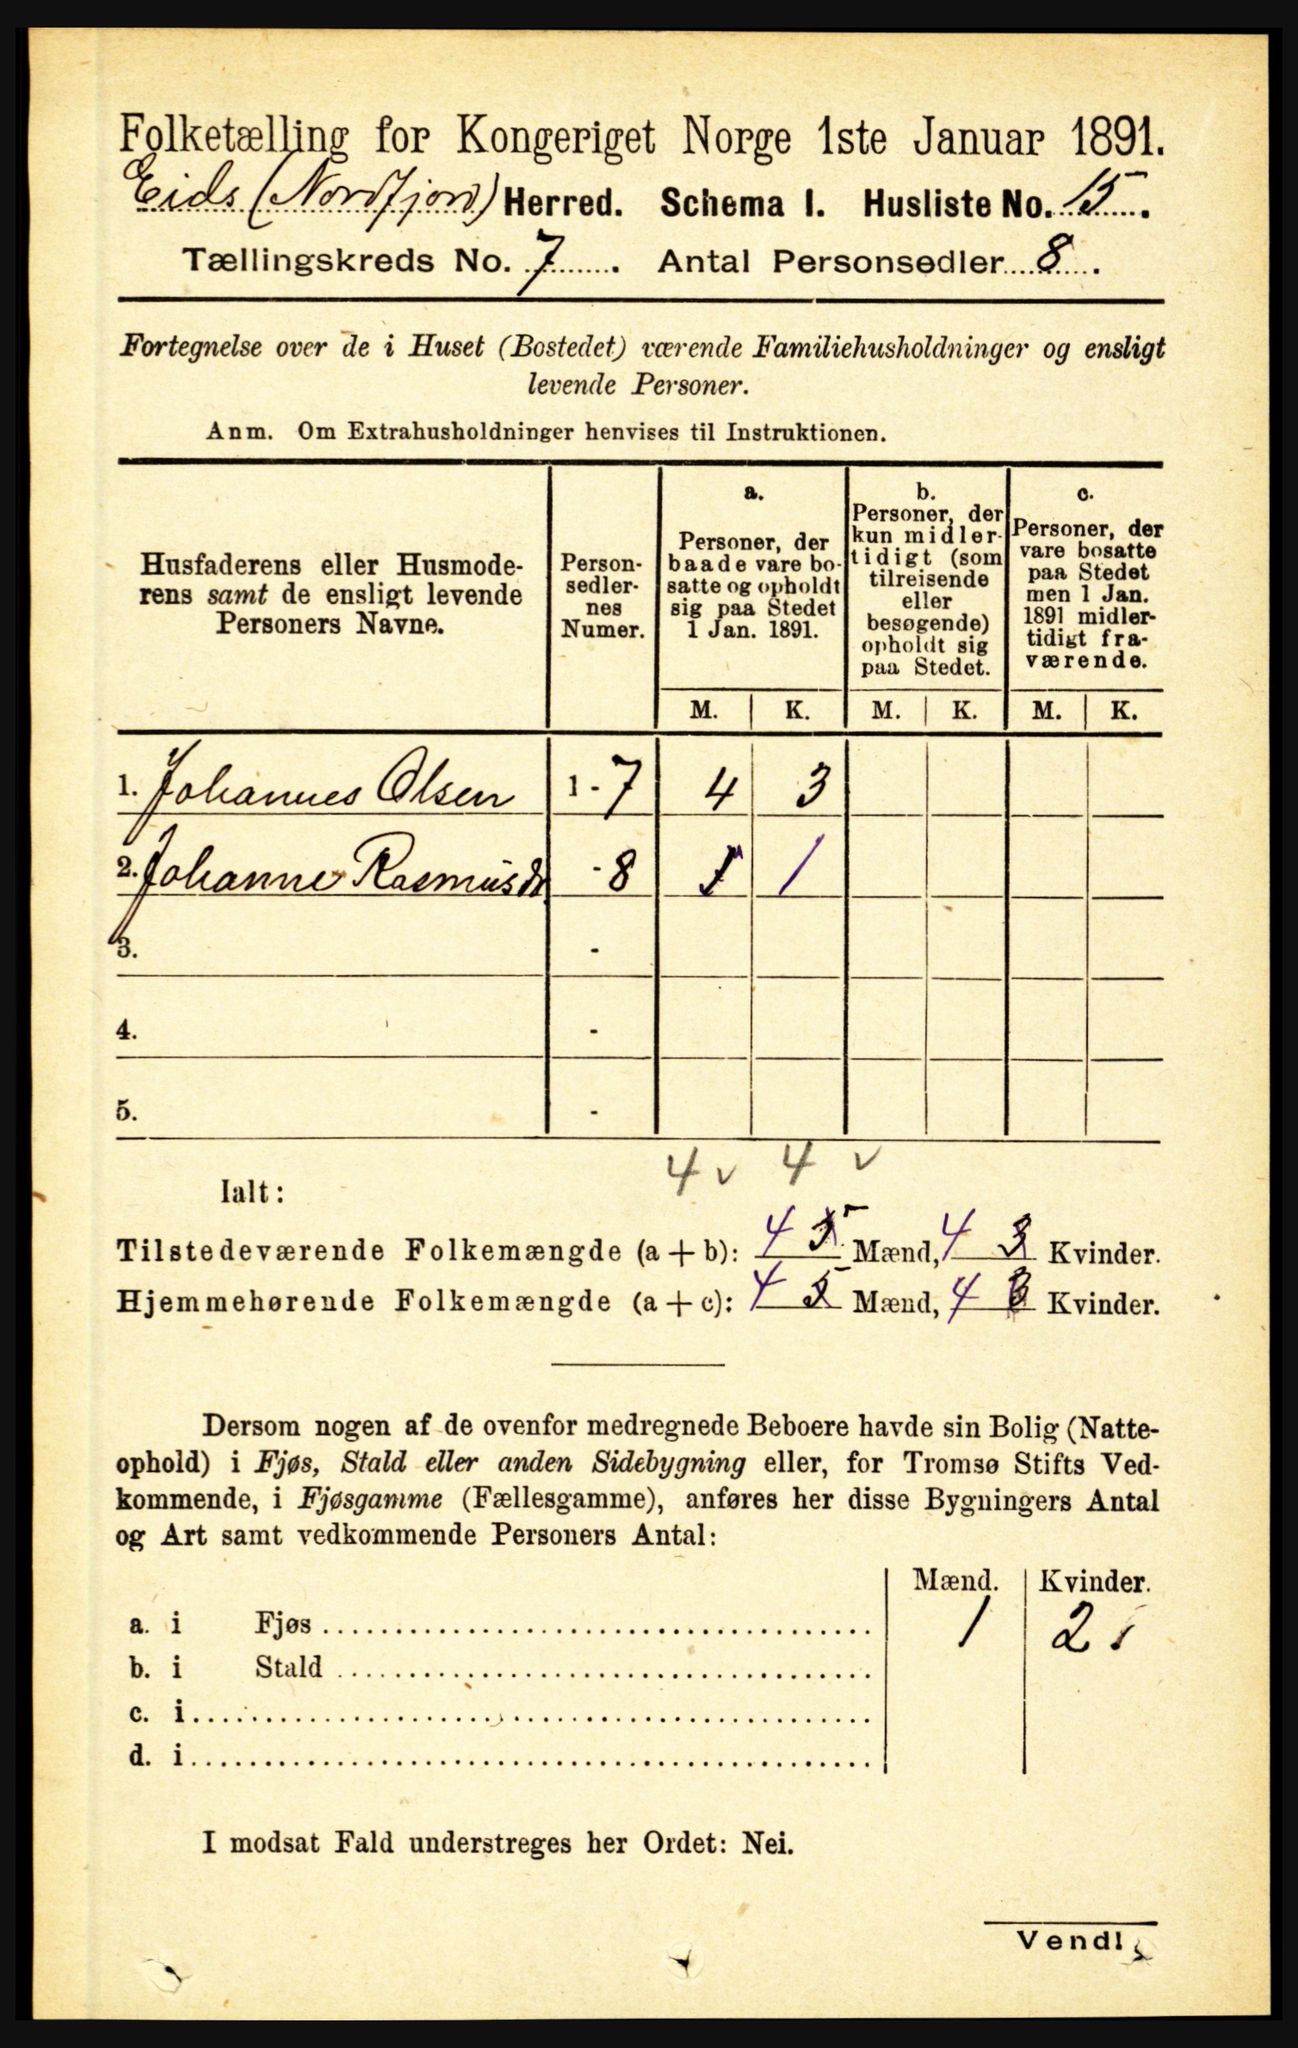 Folketælling for Kongeriget Norge 1ste Januar 1891.
Eids (Nordfjord) Herred. Schema I. Husliste No. 15.
Tællingskreds No. 7. Antal Personsedler 8.
Fortegnelse over de i Huset (Bostedet) værende Familiehusholdninger og ensligt
levende Personer.
Anm. Om Extrahusholdninger henvises til Instruktionen.
Husfaderens eller Husmode-
rens samt de ensligt levende
Personers Navne.
Person-
sedler-
nes
Numer.
a.
Personer, der
baade vare bo-
satte og opholdt
sig paa Stedet
1 Jan. 1891.
b.
Personer, der
kun midler-
tidigt (som
tilreisende
eller
besøgende)
opholdt sig
paa Stedet.
c.
Personer, der
vare bosatte
paa Stedet
men 1 Jan.
1891 midler-
tidigt fra-
værende.
M. K. M. K. M. K.
1. Johannes Olsen 1 - 7 4 3
2. Johanne Rasmusdr - 8 1 1
3. -
4. -
5. -
4 v 4 v
Ialt:
Tilstedeværende Folkemængde (a + b): 4 5 Mænd, 4 3 Kvinder.
Hjemmehørende Folkemængde (a + c): 4 5 Mænd, 4 3 Kvinder.
Dersom nogen af de ovenfor medregnede Beboere havde sin Bolig (Natte-
ophold) i Fjøs, Stald eller anden Sidebygning eller, for Tromsø Stifts Ved-
kommende, i Fjøsgamme (Fællesgamme), anføres her disse Bygningers Antal
og Art samt vedkommende Personers Antal:
Mænd. Kvinder.
a. i Fjøs 1 2
b. i Stald
c. i
d. i
I modsat Fald understreges her Ordet: Nei.
Vend!